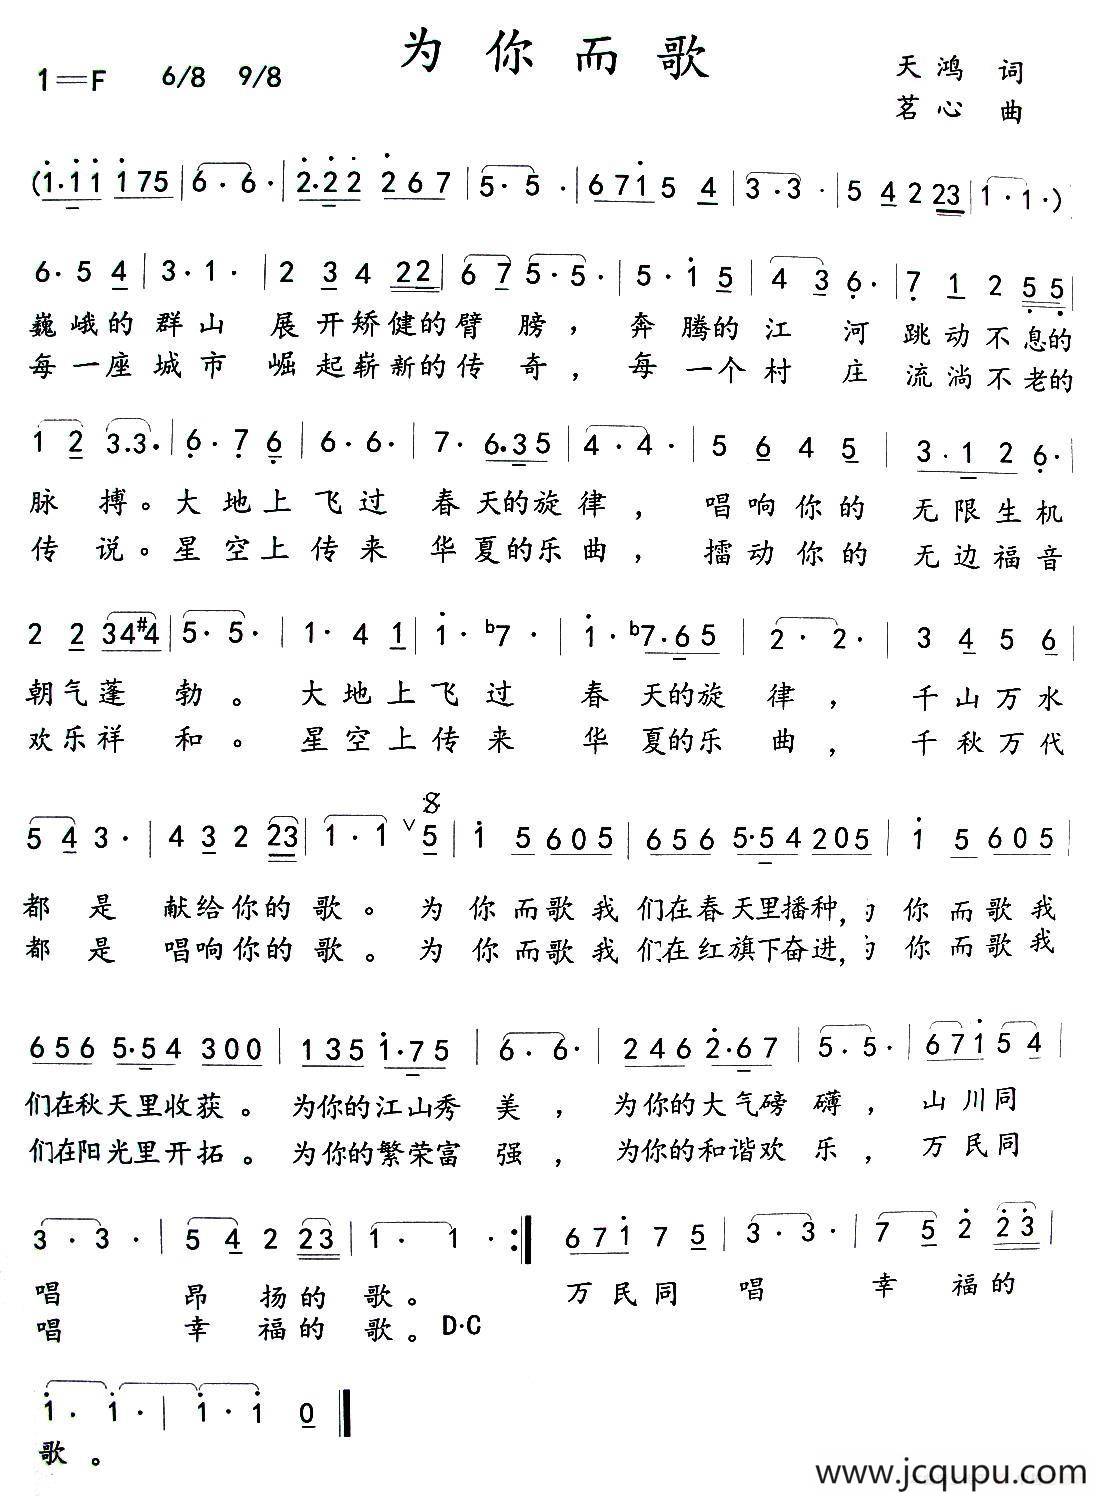 为你而歌
1=F 6/8 9/8
天鸿 词
茗心 曲
(1·11 175 | 6· 6· | 2·22 267 | 5· 5· | 6715 4 | 3· 3· | 5 4 2 23 | 1· 1·)
6· 5 4 | 3· 1· | 2 3 4 22 | 6 7 5· 5· | 5· 1 5 | 4 3 6· | 7 1 2 55 |
巍峨的群山 展开矫健的臂膀，奔腾的江河跳动不息的
每一座城市 崛起崭新的传奇，每一个村庄流淌不老的
1 2 3· 3· | 6· 7 6 | 6· 6· | 7· 6·35 | 4· 4· | 5 6 4 5 | 3·1 2 6· |
脉搏。大地上飞过 春天的旋律，唱响你的 无限生机
传说。星空上传来 华夏的乐曲，擂动你的 无边福音
2 2 34#4 | 5· 5· | 1· 4 1 | 1· b7· | 1· b7·65 | 2· 2· | 3 4 5 6 |
朝气蓬勃。大地上飞过 春天的旋律，千山万水
欢乐祥和。星空上传来 华夏的乐曲，千秋万代
5 4 3· | 4 3 2 23 | 1· 1 ∨ 5 | 1 5 605 | 656 5·54 205 | 1 5 605 |
都是 献给你的歌。为你而歌我们在春天里播种，为你而歌我
都是 唱响你的歌。为你而歌我们在红旗下奋进，为你而歌我
656 5·54 300 | 135 1·75 | 6· 6· | 246 2·67 | 5· 5· | 6715 4 |
们在秋天里收获。为你的江山秀美，为你的大气磅礴，山川同
们在阳光里开拓。为你的繁荣富强，为你的和谐欢乐，万民同
3· 3· | 5 4 2 23 | 1· 1· :‖ 671 7 5 | 3· 3· | 7 5 2 23 |
唱 昂扬的歌。 万民同 唱 幸福的
唱 幸福的歌。D·C
1· 1· | 1· 1 0 ‖
歌。
www.jcqupu.com